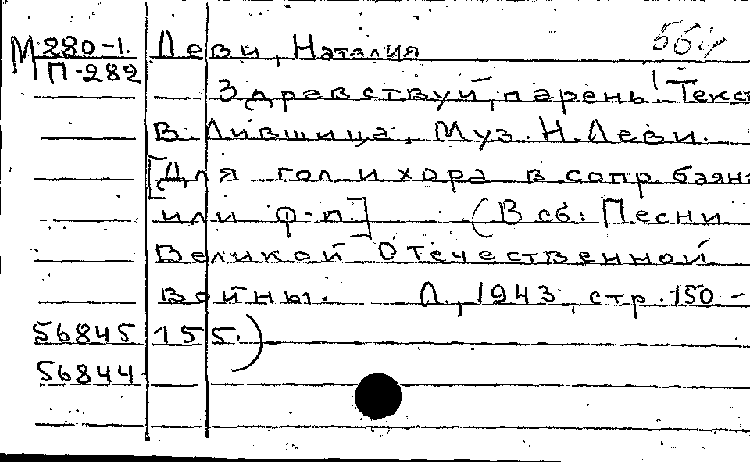 М 280-1. Леви, Наталия 564
П-282
Здравствуй, парень! Текст
В. Лившица, Муз. Н. Леви.
[Для гол и хора в сопр. баяна
или ф-п] (В сб: Песни
Великой Отечественной
войны. Л, 1943, стр. 150-
56845 155.)
56844